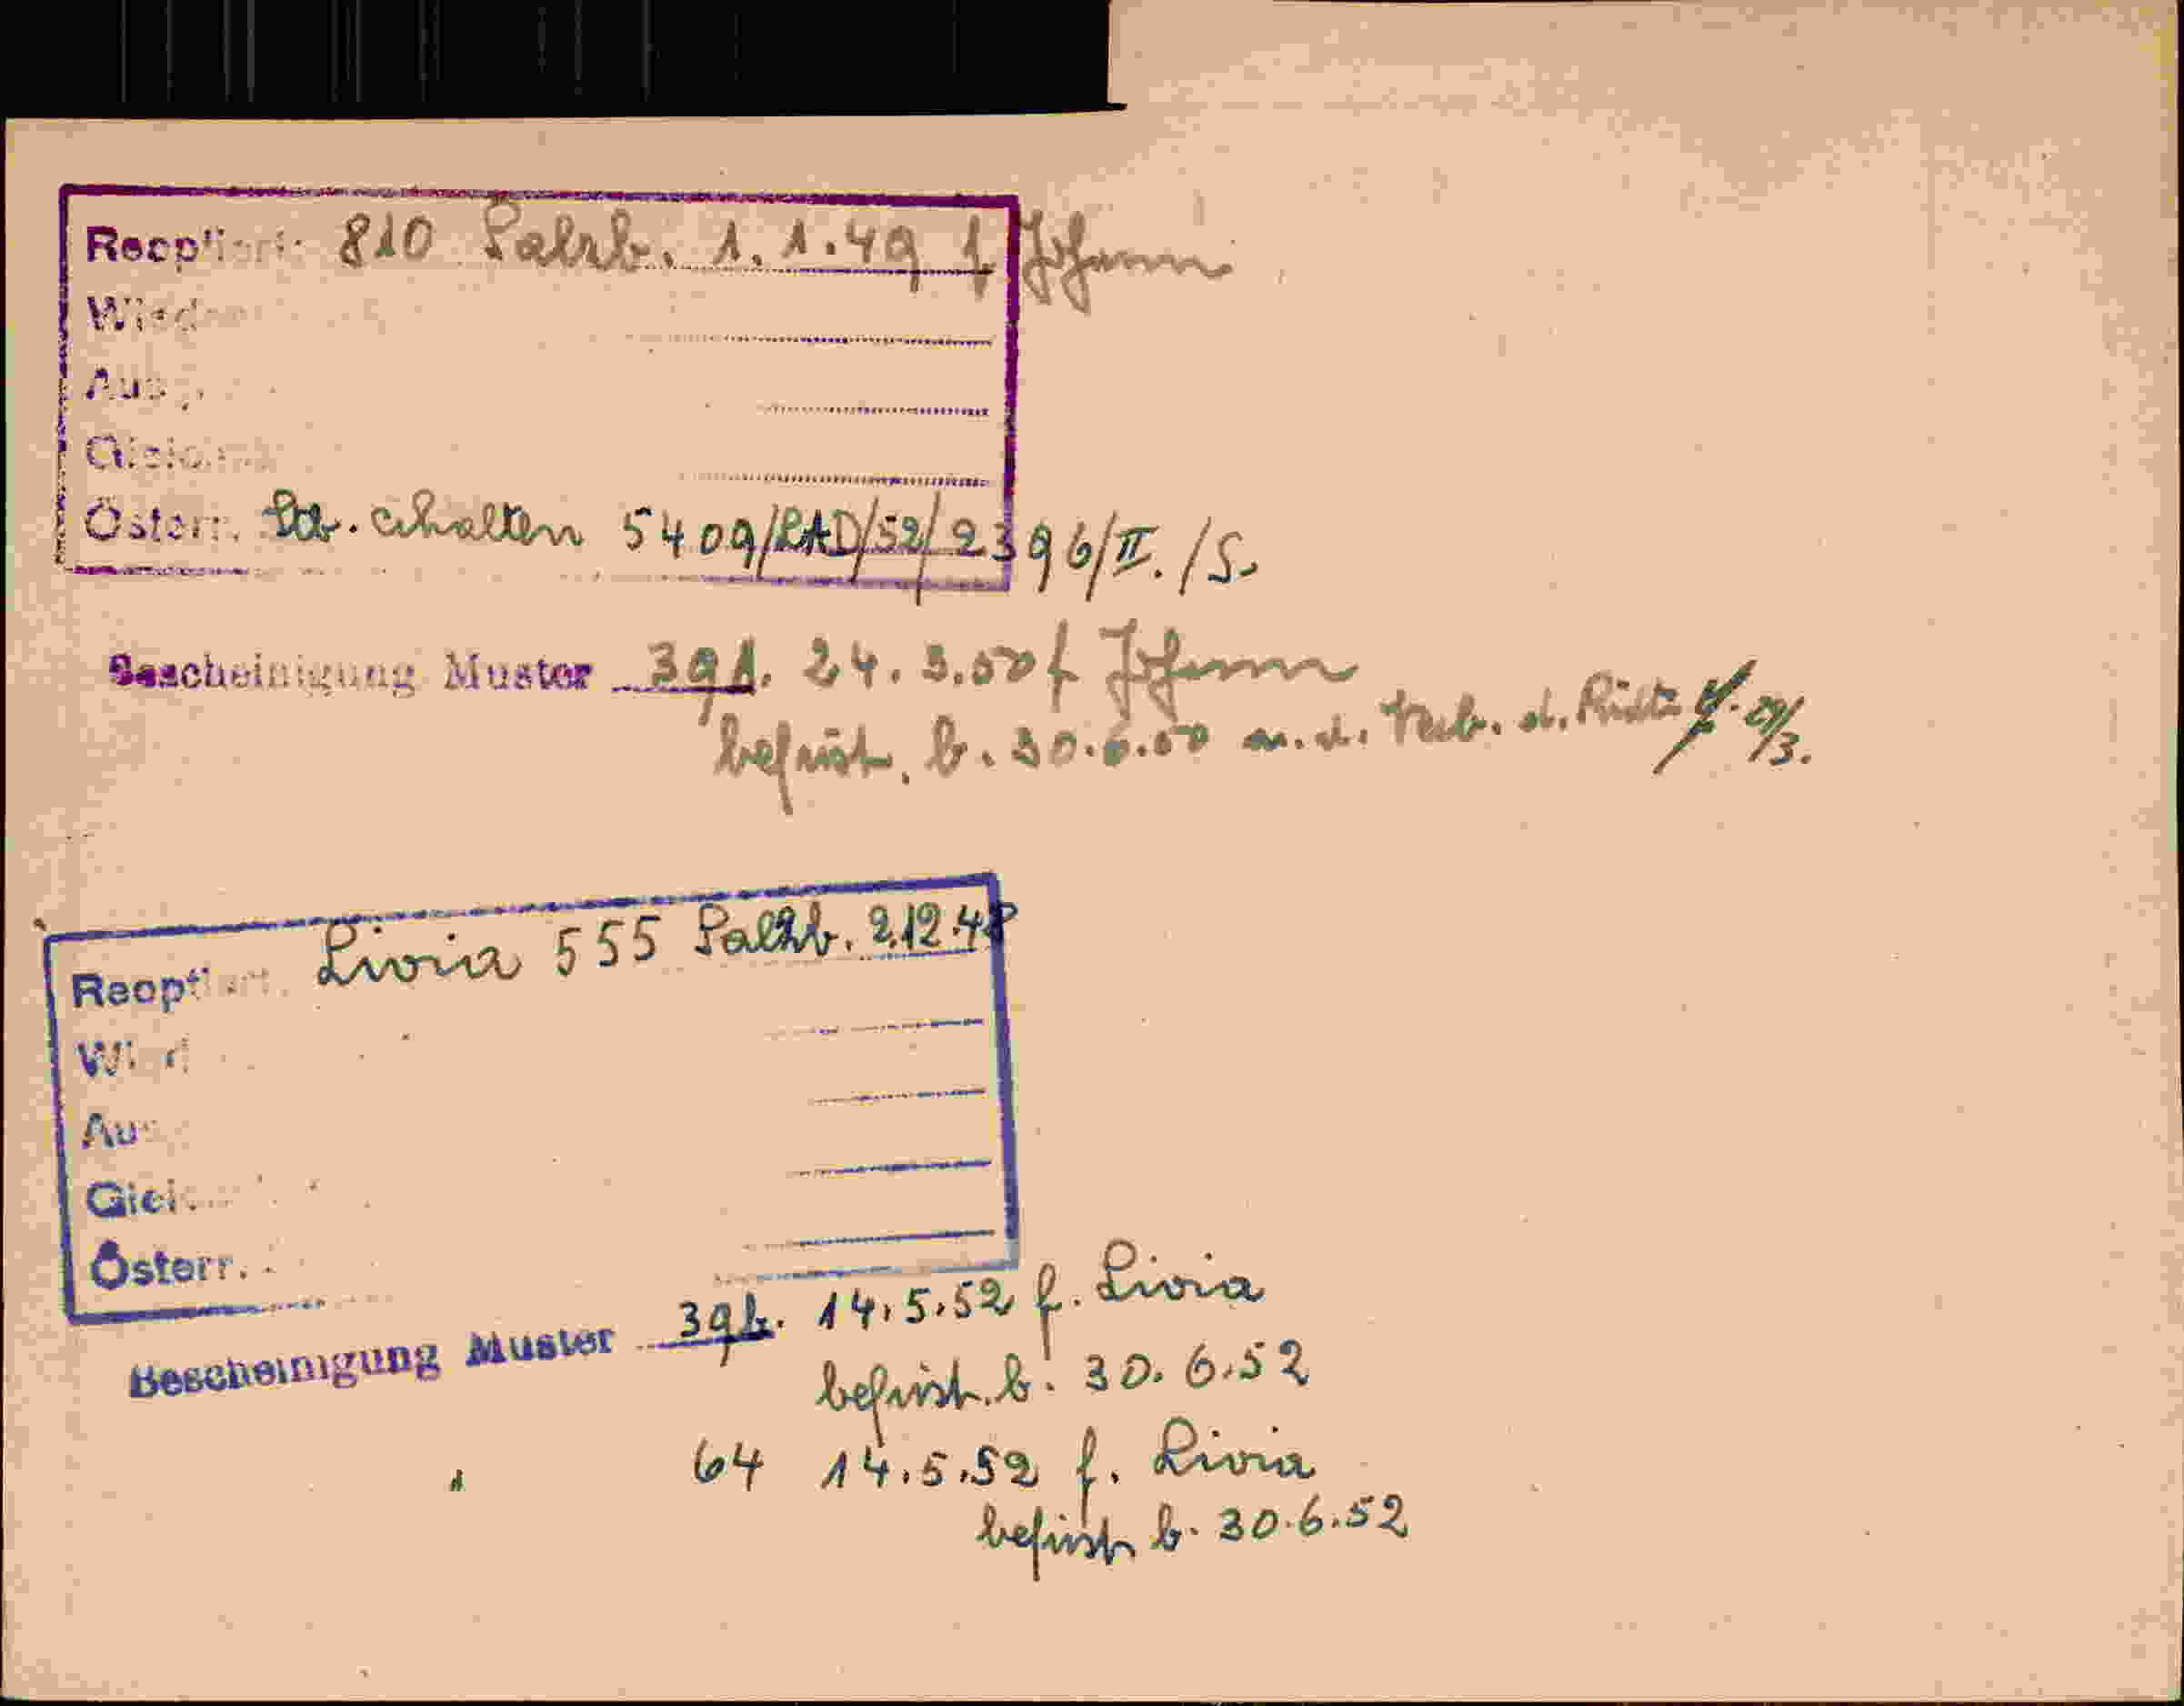 Reoptiert: 810 Salzb. 1.1.49 f. Johann
Wieder
Aus
Gleich
Österr. Stb. erhalten 5409/RAD/52/2396/II./S.
Bescheinigung Muster 39b. 24.3.50 f Johann
befrist. b. 30.6.50 m. d. Verb. d. 29/3.
Reoptiert: Livia 555 Salzb. 2.12.48
Wied
Aus
Gleic
Österr.
Bescheinigung Muster 39b. 14.5.52 f. Livia
befrist. b. 30.6.52
64 14.5.52 f. Livia
befrist b. 30.6.52